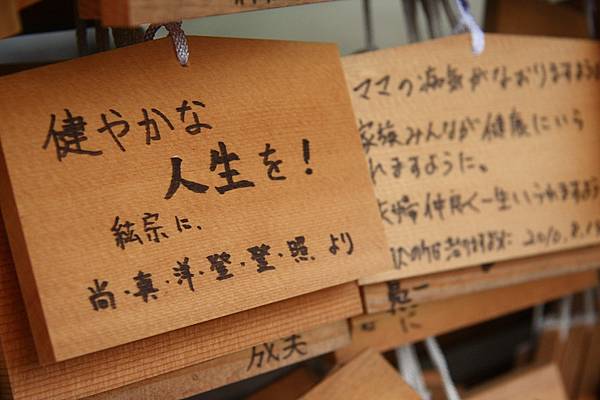 健やかな
人生を!
紘宗に、
尚・真・洋・登・登・照 より
ママの病気がなおりますように
家族みんなが健康にいら
れますように。
夫婦仲良く一生いられますよう
2010.8.1
成夫